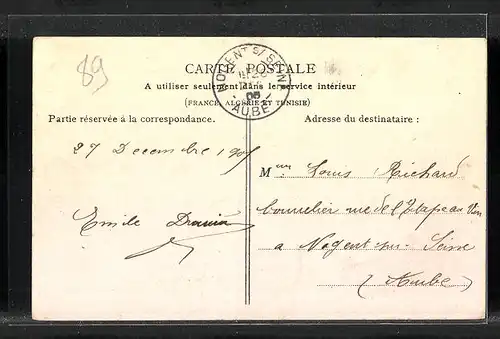 89
CARTE POSTALE
NOGENT S/ SEINE
05
AUBE
A utiliser seulement dans le service intérieur
(FRANCE, ALGÉRIE ET TUNISIE)
Partie réservée à la correspondance.
Adresse du destinataire :
27 Decembre 1905
Emile
Louis Richard
bourrelier rue de l'Etape au Vin
a Nogent-sur-Seine
(Aube)